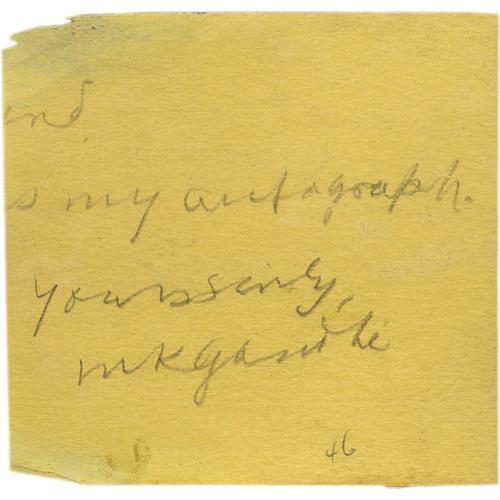 end
s my autograph.
yours sinly,
mkgandhi
46